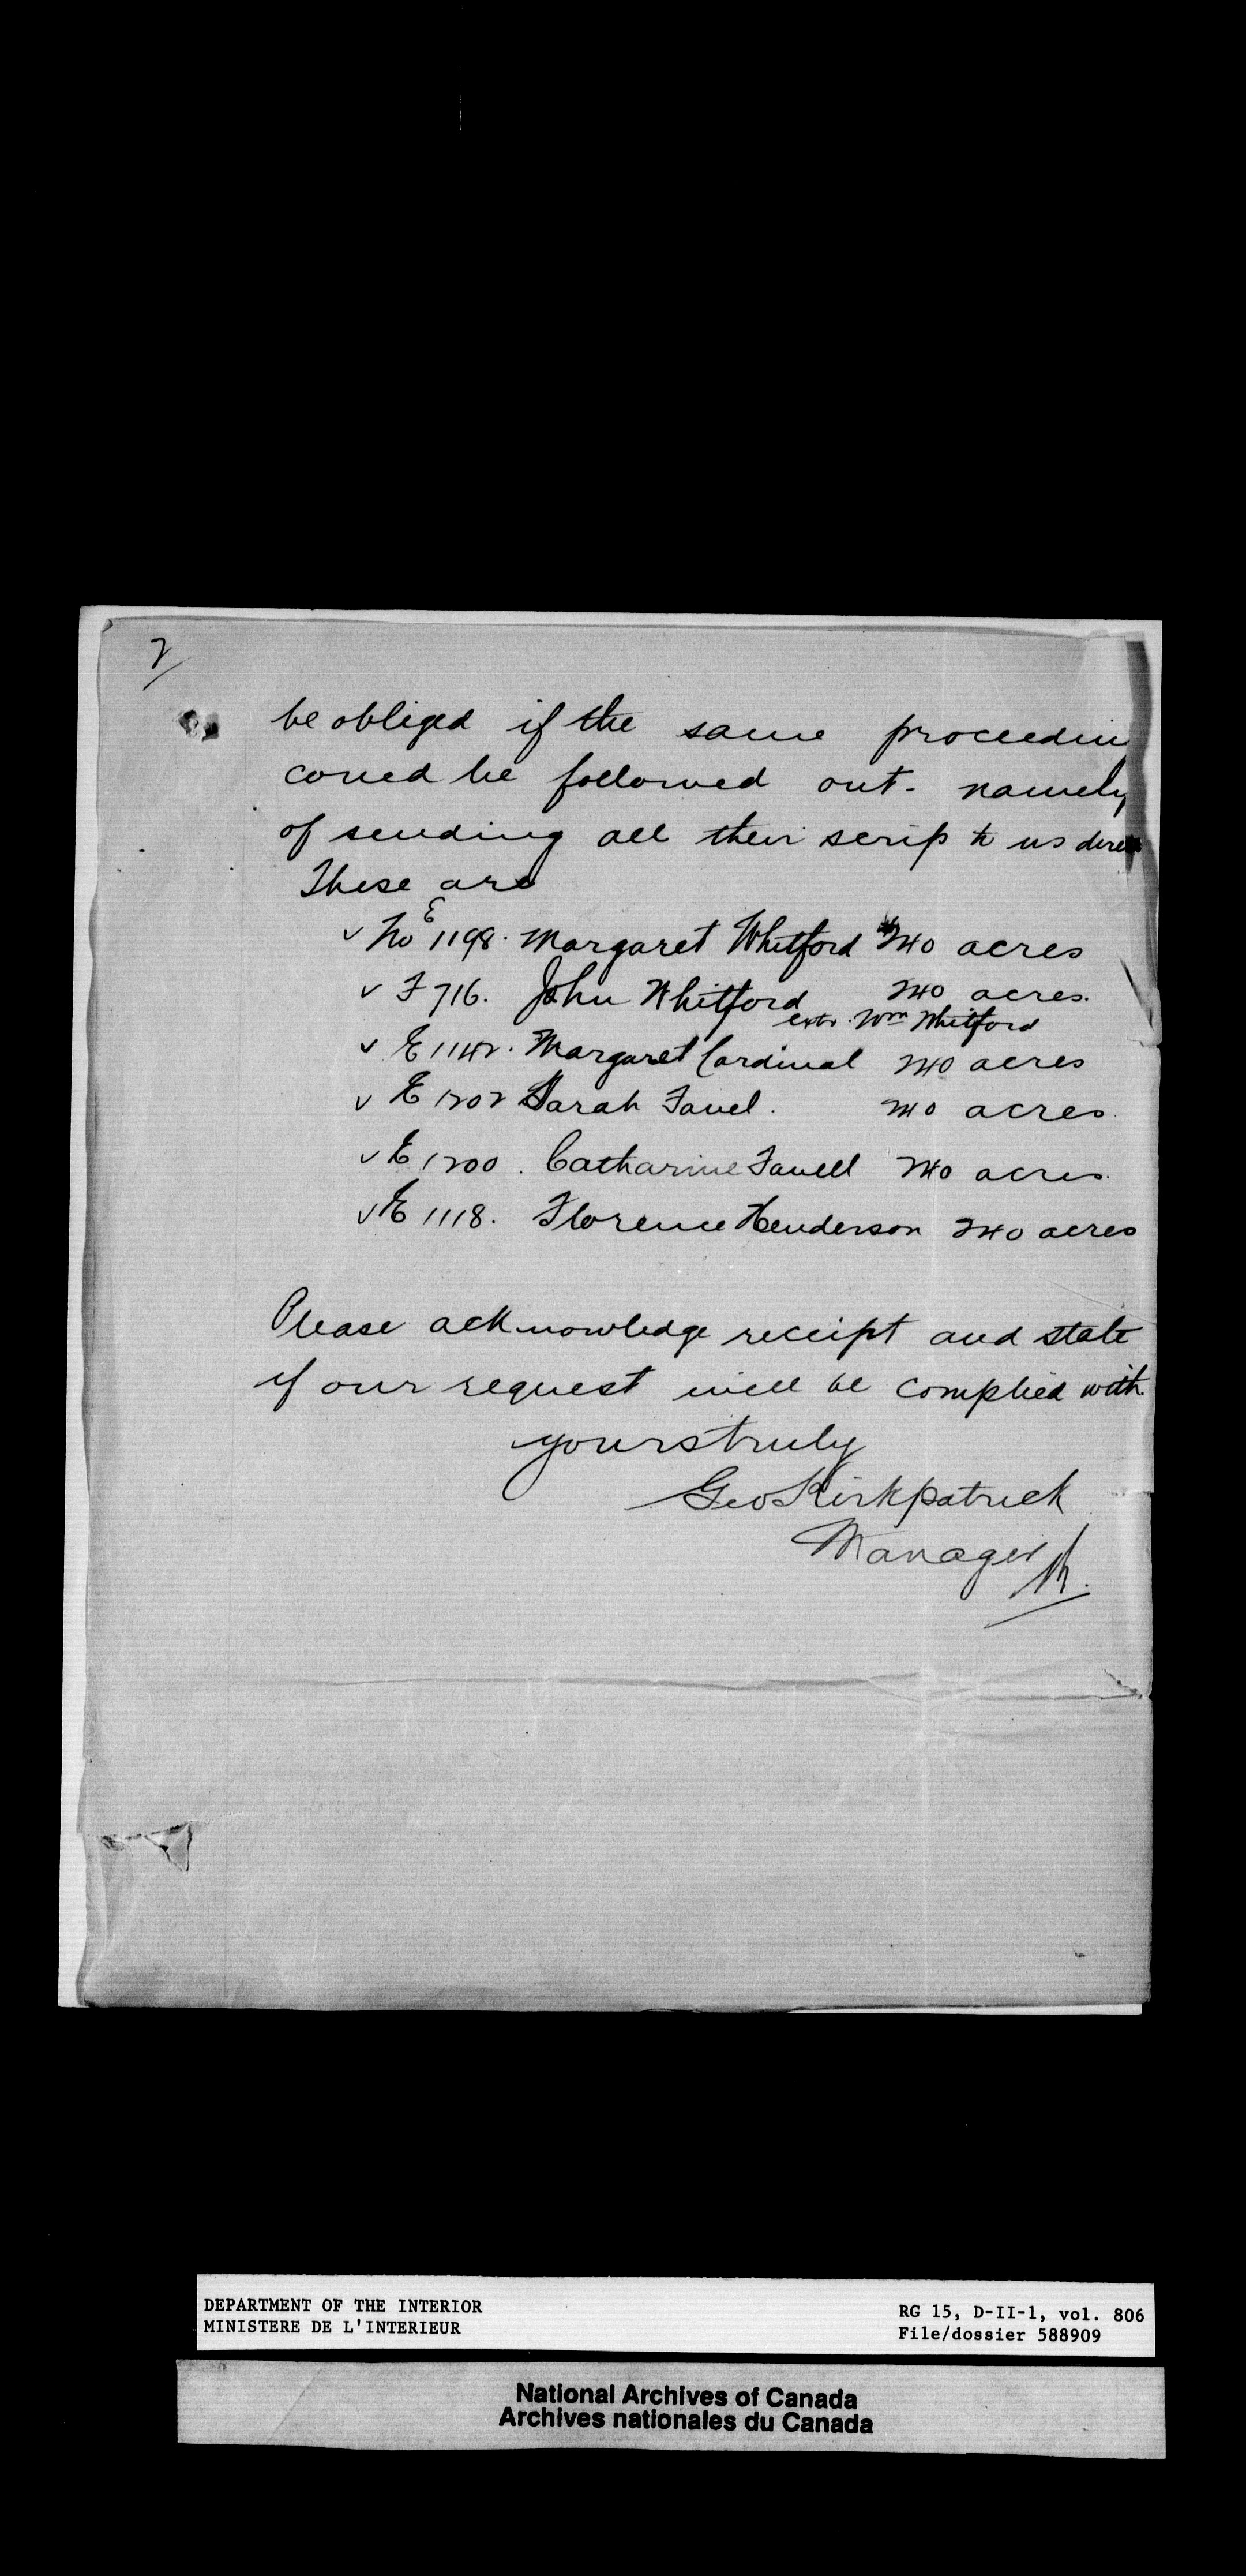 2/
be obliged if the same proceedin
could be followed out - namely
of sending all their scrip to us direct
These are
✓ No E 1198. Margaret Whitford 240 acres
✓ F 716. John Whitford 240 acres.
extr. Wm Whitford
✓ E 1142. Margaret Cardinal 240 acres
✓ E 1202 Sarah Favel. 240 acres
✓ E 1200. Catharine Favell 240 acres.
✓ E 1118. Florence Henderson 240 acres
Please acknowledge receipt and state
if our request will be complied with
yours truly
Geo Kirkpatrick
Manager
DEPARTMENT OF THE INTERIOR
MINISTERE DE L'INTERIEUR
RG 15, D-II-1, vol. 806
File/dossier 588909
National Archives of Canada
Archives nationales du Canada